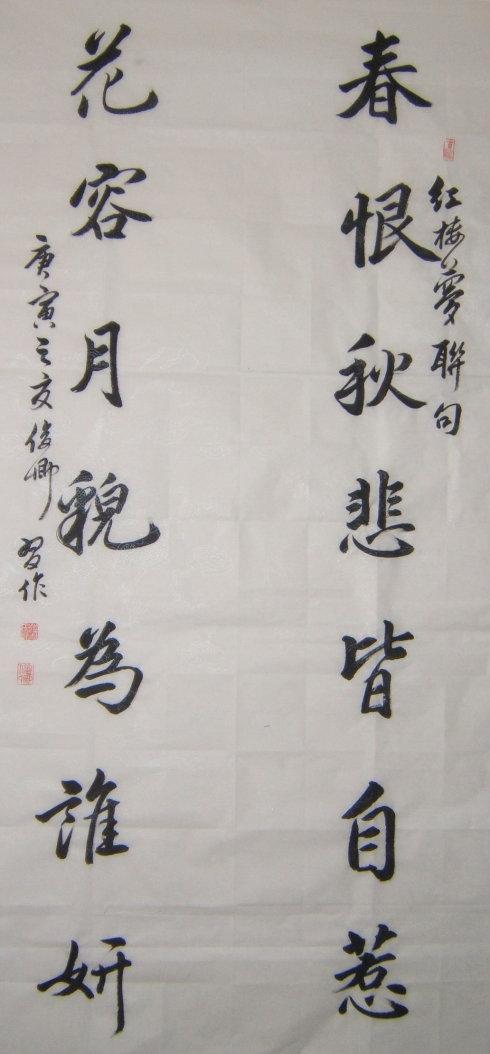 春恨秋悲皆自惹
紅楼夢聯句
花容月貌為誰妍
庚寅之夏俊卿習作